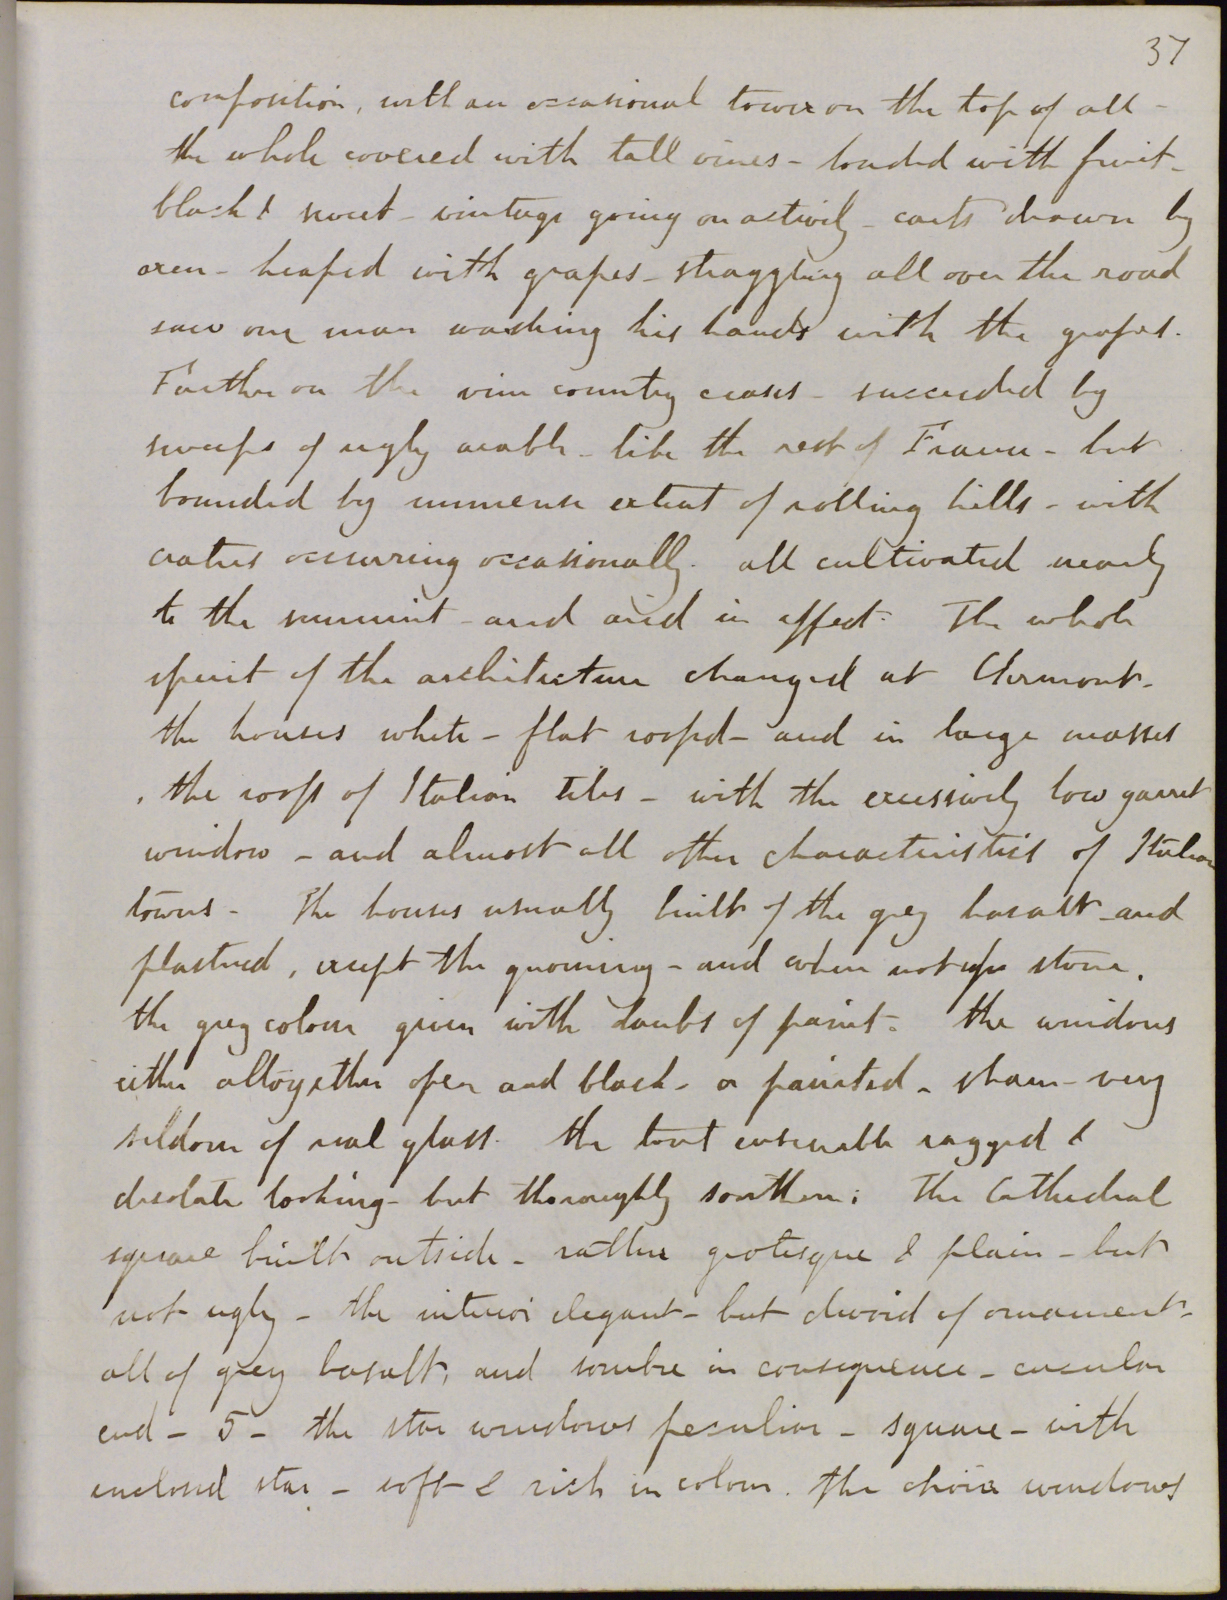 37
composition, with an occasional tower on the top of all -
the whole covered with tall vines - loaded with fruit -
black & sweet - vintage going on actively - carts drawn by
oxen - heaped with grapes - straggling all over the road
saw one man washing his hands with the grapes.
Farther on the vine country ceases - succeeded by
sweeps of ugly arable - like the rest of France - but
bounded by immense extent of rolling hills - with
craters occurring occasionally. all cultivated nearly
to the summit - and arid in effect. The whole
spirit of the architecture changed at Clermont -
the houses white - flat roofed - and in large masses
, the roofs of Italian tiles - with the excessively low garret
window - and almost all other characteristics of Italian
towns - The houses usually built of the grey basalt - and
plastered, except the groining - and when not of stone,
the grey colour given with daubs of paint - the windows
either altogether open and black - or painted - sham - very
seldom of real glass. The tout ensemble ragged &
desolate looking - but thoroughly southern; The Cathedral
square built outside - rather grotesque & plain - but
not ugly - the interior elegant - but devoid of ornament -
all of grey basalt, and sombre in consequence - circular
end - 5 - the star windows peculiar - square - with
enclosed star - soft & rich in colour. The choir windows